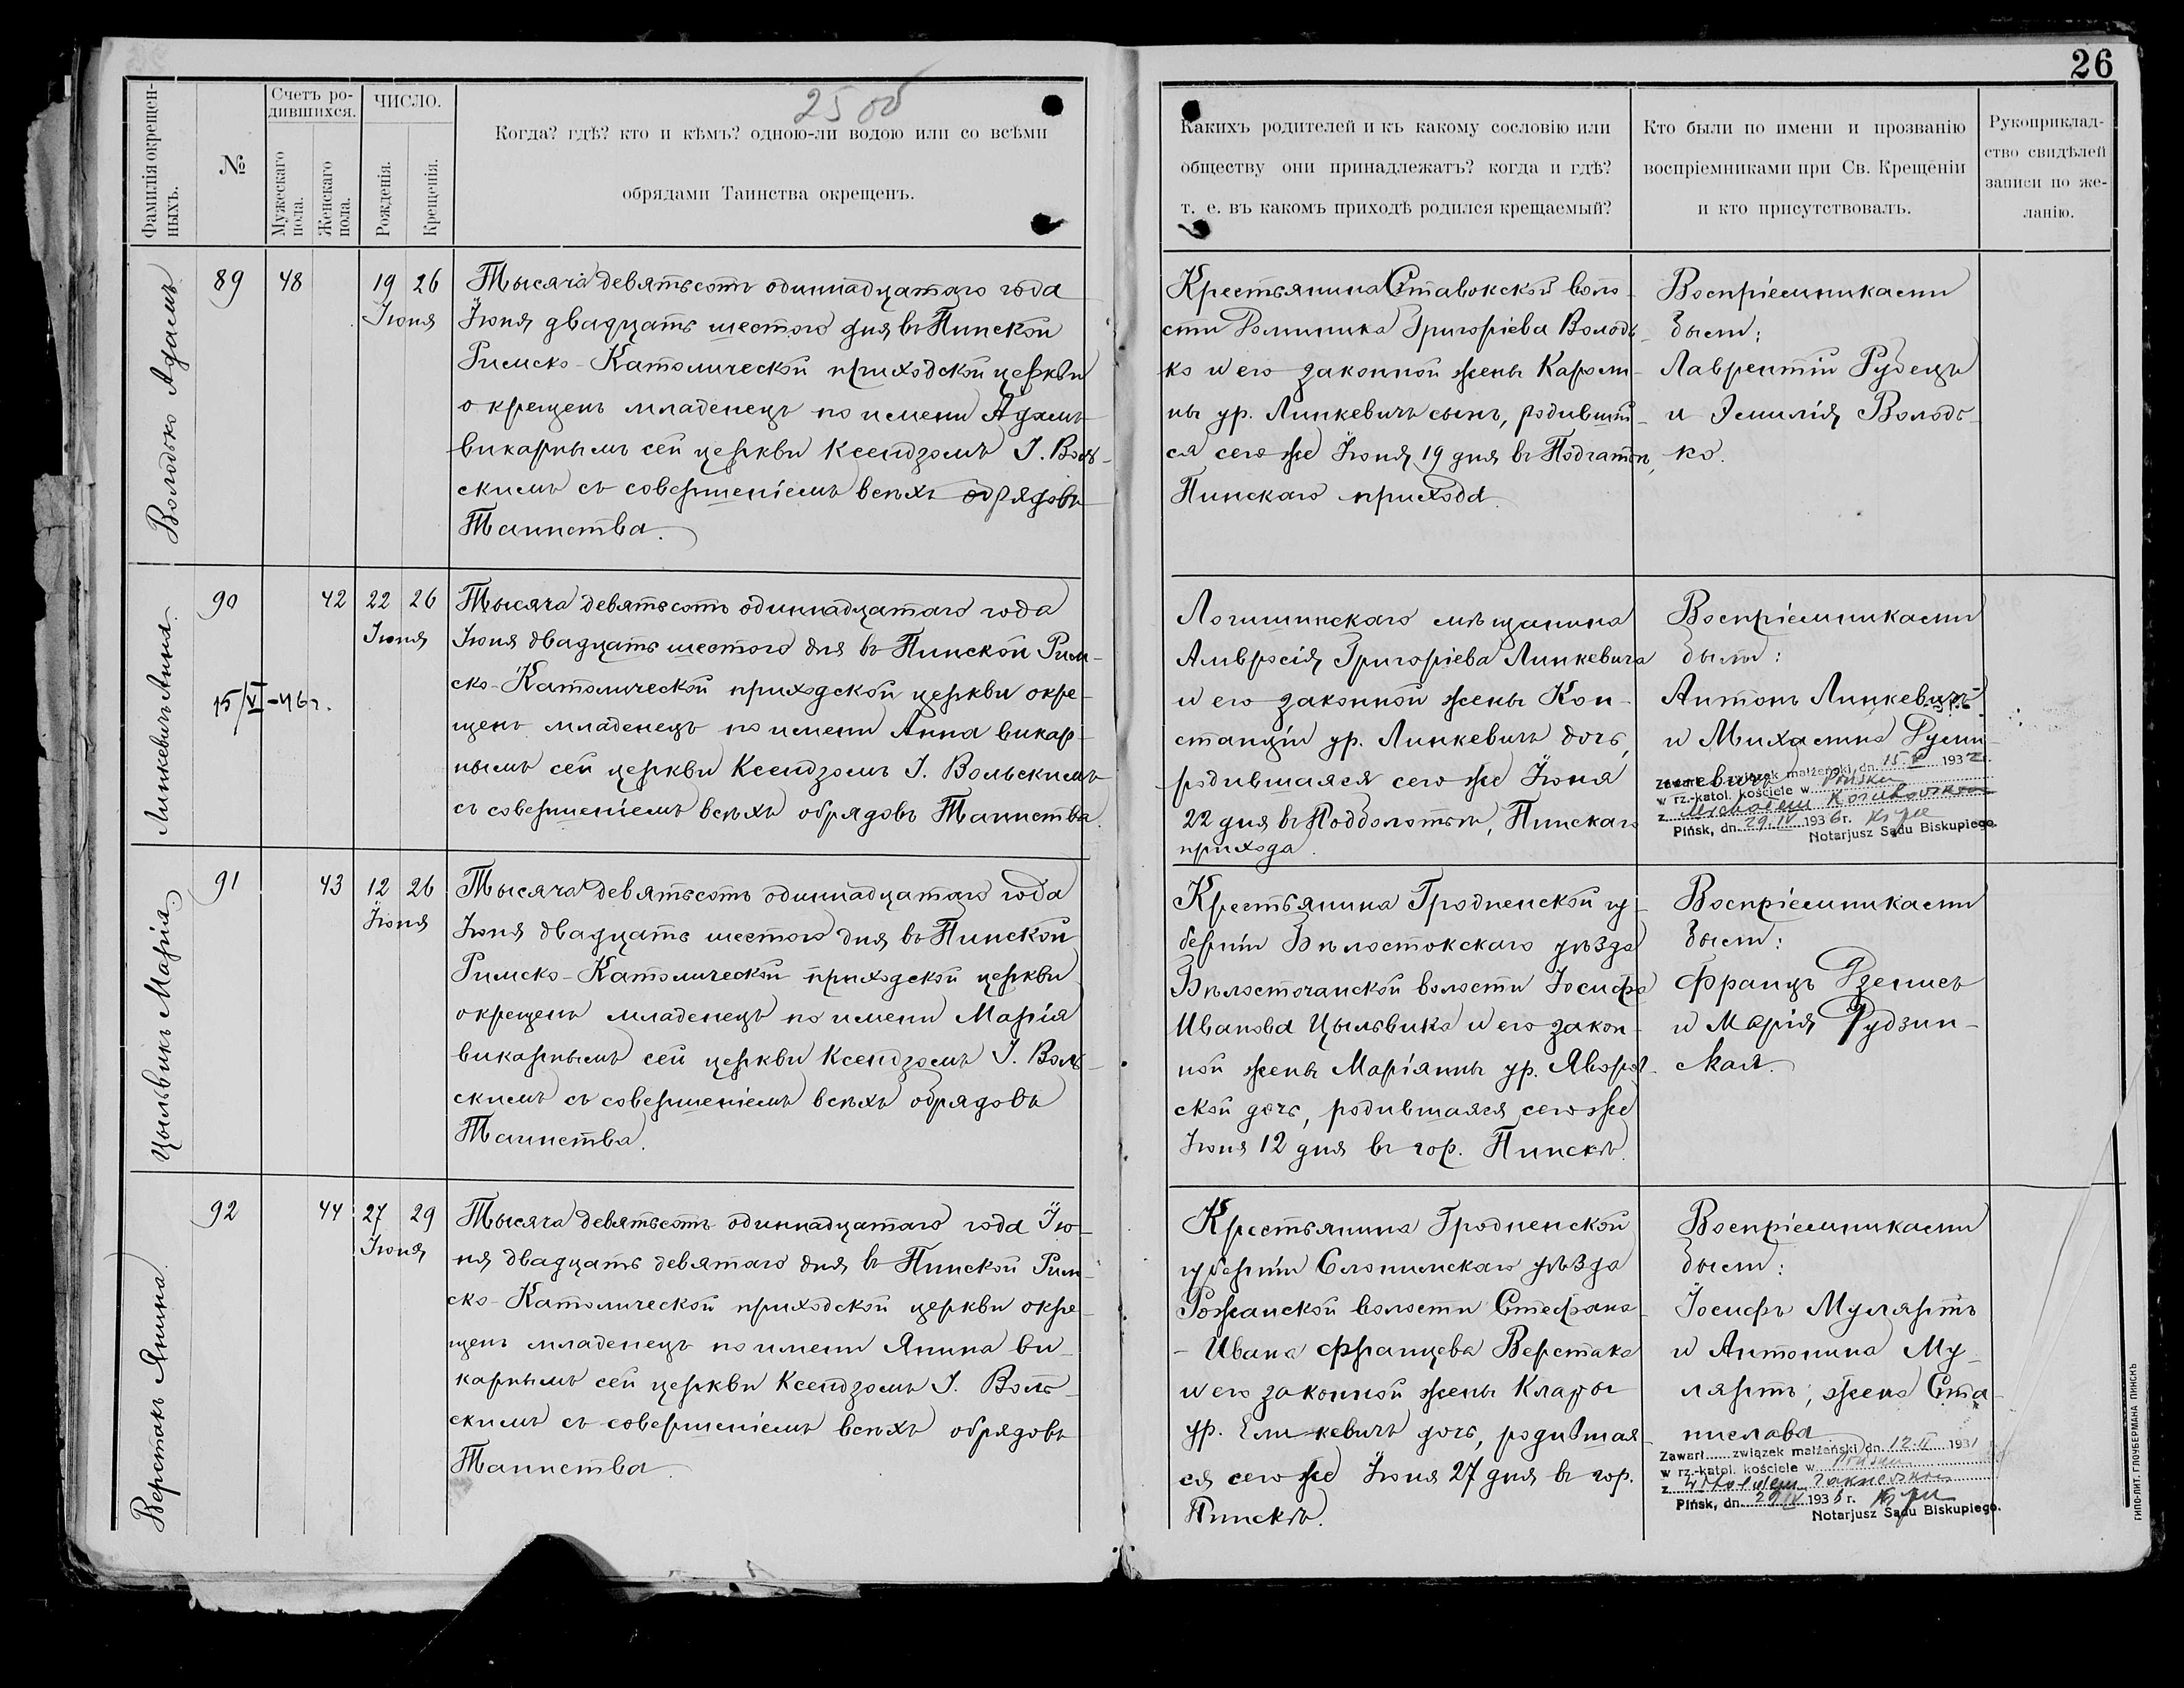 26
25 об
Фамилія окрещен-
ныхъ.
№
Счетъ ро-
дившихся.
Мужескаго
пола.
Женскаго
пола.
ЧИСЛО.
Рожденія.
Крещенія.
Когда? гдѣ? кто и кѣмъ? одною-ли водою или со всѣми
обрядами Таинства окрещенъ.
Какихъ родителей и къ какому сословію или
обществу они принадлежатъ? когда и гдѣ?
т. е. въ какомъ приходѣ родился крещаемый?
Кто были по имени и прозванію
воспріемниками при Св. Крещеніи
и кто присутствовалъ.
Рукоприклад-
ство свидѣлей
записи по же-
ланію.
Володько Адамъ
89
48
19 26
Іюня
Тысяча девятьсотъ одиннадцатаго года
Іюня двадцать шестого дня въ Пинской
Римско-Католической приходской церкви
окрещенъ младенецъ по имени Адамъ
викарнымъ сей церкви Ксендзомъ І. Воль-
скимъ съ совершеніемъ всѣхъ обрядовъ
Таинства.
Крестьянина Ставокской воло-
сти Доминика Григоріева Володь-
ко и его законной жены Кароли-
ны ур. Линкевичъ сынъ, родивший-
ся сего же Іюня 19 дня въ
Пинскаго прихода.
Воспріемниками
были:
Лаврентій Рубецъ
и Эмилія Володь-
ко.
Линкевичъ Анна.
90
15/VI-46г.
42
22 26
Іюня
Тысяча девятьсотъ одиннадцатаго года
Іюня двадцать шестого дня въ Пинской Рим-
ско-Католической приходской церкви окре-
щенъ младенецъ по имени Анна викар-
нымъ сей церкви Ксендзомъ І. Вольскимъ
съ совершеніемъ всѣхъ обрядовъ Таинства.
Логишинскаго мѣщанина
Амвросія Григоріева Линкевича
и его законной жены Кон-
станціи ур. Линкевичъ дочь,
родившаяся сего же Іюня
22 дня въ Подболотьѣ, Пинскаго
прихода.
Воспріемниками
были:
Антонъ Линкевичъ
и Михалина Руси-
кевичъ
Zawarł związek małżeński dn. 15. 1932 r.
w rz.-katol. kościele w Pińsku
z Michałem
Pińsk, dn. 29.IV 1936 r.
Notarjusz Sądu Biskupiego.
Цыльвикъ Марія
91
43
12 26
Іюня
Тысяча девятьсотъ одиннадцатаго года
Іюня двадцать шестого дня въ Пинской
Римско-Католической приходской церкви
окрещенъ младенецъ по имени Марія
викарнымъ сей церкви Ксендзомъ І. Воль-
скимъ съ совершеніемъ всѣхъ обрядовъ
Таинства.
Крестьянина Гродненской гу-
берніи Бѣлостокскаго уѣзда
Бѣлосточанской волости Іосифа
Иванова Цыльвика и его закон-
ной жены Маріянны ур. Яворов-
ской дочь, родившаяся сего же
Іюня 12 дня въ гор. Пинскѣ.
Воспріемниками
были:
Францъ
и Марія Рудзин-
ская.
Верстакъ Янина.
92
44
27 29
Іюня
Тысяча девятьсотъ одиннадцатаго года Ію-
ня двадцать девятаго дня въ Пинской Рим-
ско-Католической приходской церкви окре-
щенъ младенецъ по имени Янина ви-
карнымъ сей церкви Ксендзомъ І. Воль-
скимъ съ совершеніемъ всѣхъ обрядовъ
Таинства.
Крестьянина Гродненской
губерніи Слонимскаго уѣзда
Рожанской волости Стефана-
-Ивана Францева Верстака
и его законной жены Клары
ур. Елинкевичъ дочь, родившая-
ся сего же Іюня 27 дня въ гор.
Пинскѣ.
Воспріемниками
были:
Іосифъ Мулярть
и Антонина Му-
лярть, жена Ста-
нислава
Zawarł związek małżeński dn. 12.II 1931
w rz.-katol. kościele w Pińsku
z Witoldem
Pińsk, dn. 29 IV 1936 r.
Notarjusz Sądu Biskupiego.
ТИПО-ЛИТ. ГЛОУБЕРМАНА ПИНСКЪ